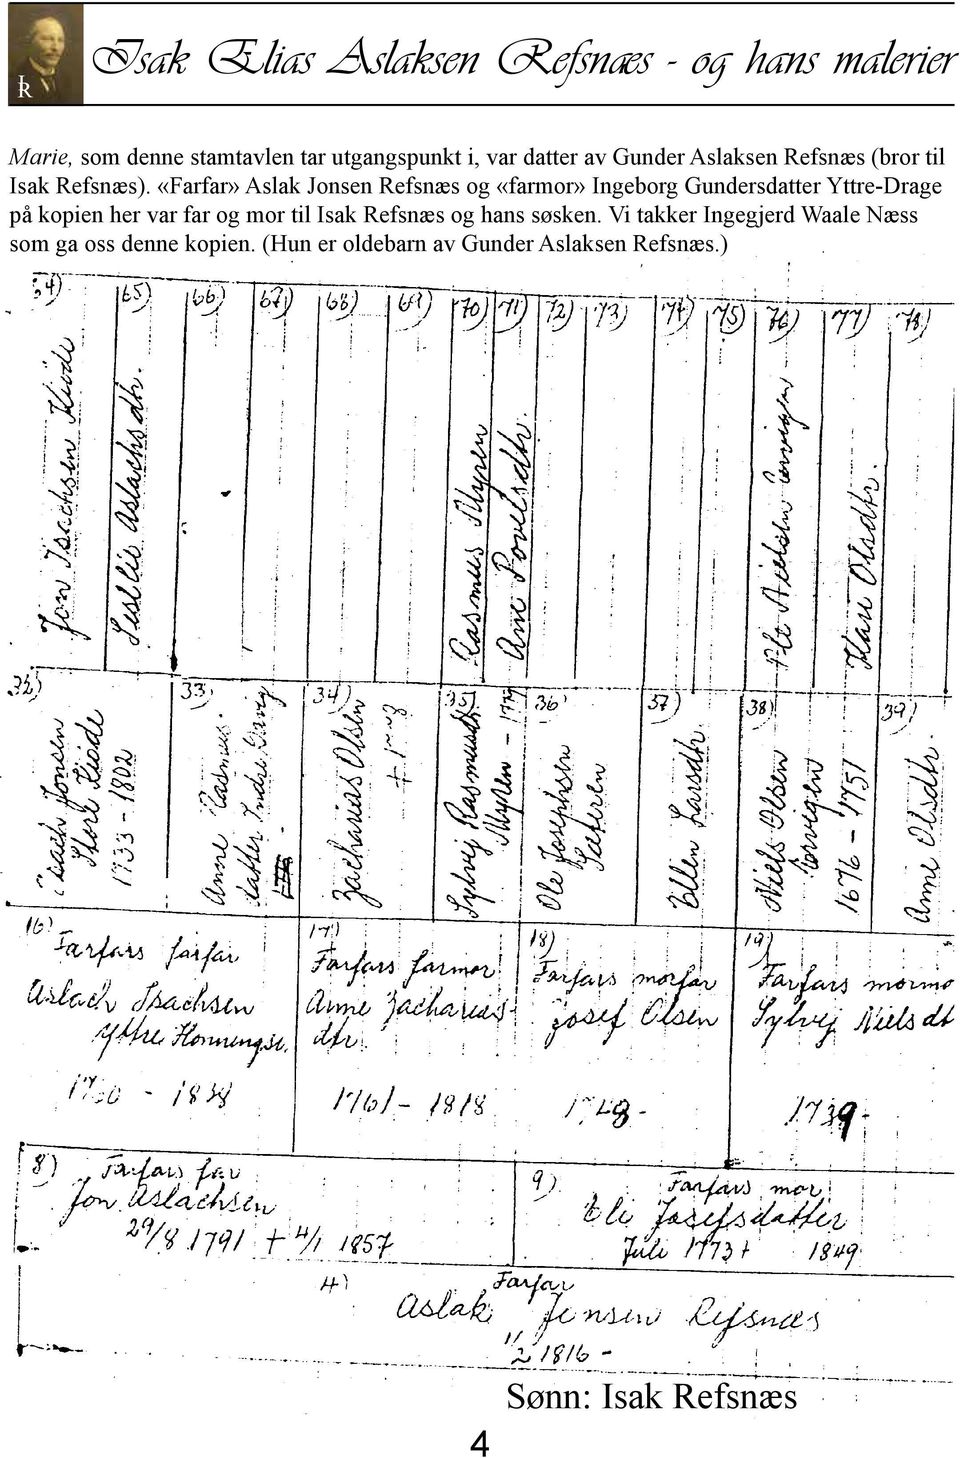 IR
Isak Elias Aslaksen Refsnæs - og hans malerier
Marie, som denne stamtavlen tar utgangspunkt i, var datter av Gunder Aslaksen Refsnæs (bror til
Isak Refsnæs). «Farfar» Aslak Jonsen Refsnæs og «farmor» Ingeborg Gundersdatter Yttre-Drage
på kopien her var far og mor til Isak Refsnæs og hans søsken. Vi takker Ingegjerd Waale Næss
som ga oss denne kopien. (Hun er oldebarn av Gunder Aslaksen Refsnæs.)
64) 65) 66) 67) 68) 69) 70) 71) 72) 73) 74) 75) 76) 77) 78)
Jon Isachsen Kiøde
Aslachsdtr.
Rasmus Myren
Ane Povelsdtr.
Kari Olsdtr.
32) 33) 34) 35) 36) 37) 38) 39)
Isach Jonsen
Store Kiøde
1733 - 1802
Anne Rasmus-
datter Indre
Zacharias Olsen
Sylvej Rasmusdtr.
Myren
Ole Josephsen
Sæteren
Ellen Larsdtr.
Niels Olsen
Torvigen
1676 - 1751
Anne Olsdtr.
16)
Farfars farfar
Aslach Isachsen
Yttre
- 1838
17)
Farfars farmor
Anne Zacharias-
dtr.
1761 - 1818
18)
Farfars morfar
Josef Olsen
19)
Farfars mormo
Sylvej Nielsdt
1739 -
8) Farfars far
Jon Aslachsen
29/8 1791 + 4/1 1857
9) Farfars mor
Eli Josefsdatter
Juli 1773 + 1849
4) Farfar
Aslak Jensen Refsnæs
1/2 1816 -
Sønn: Isak Refsnæs
4